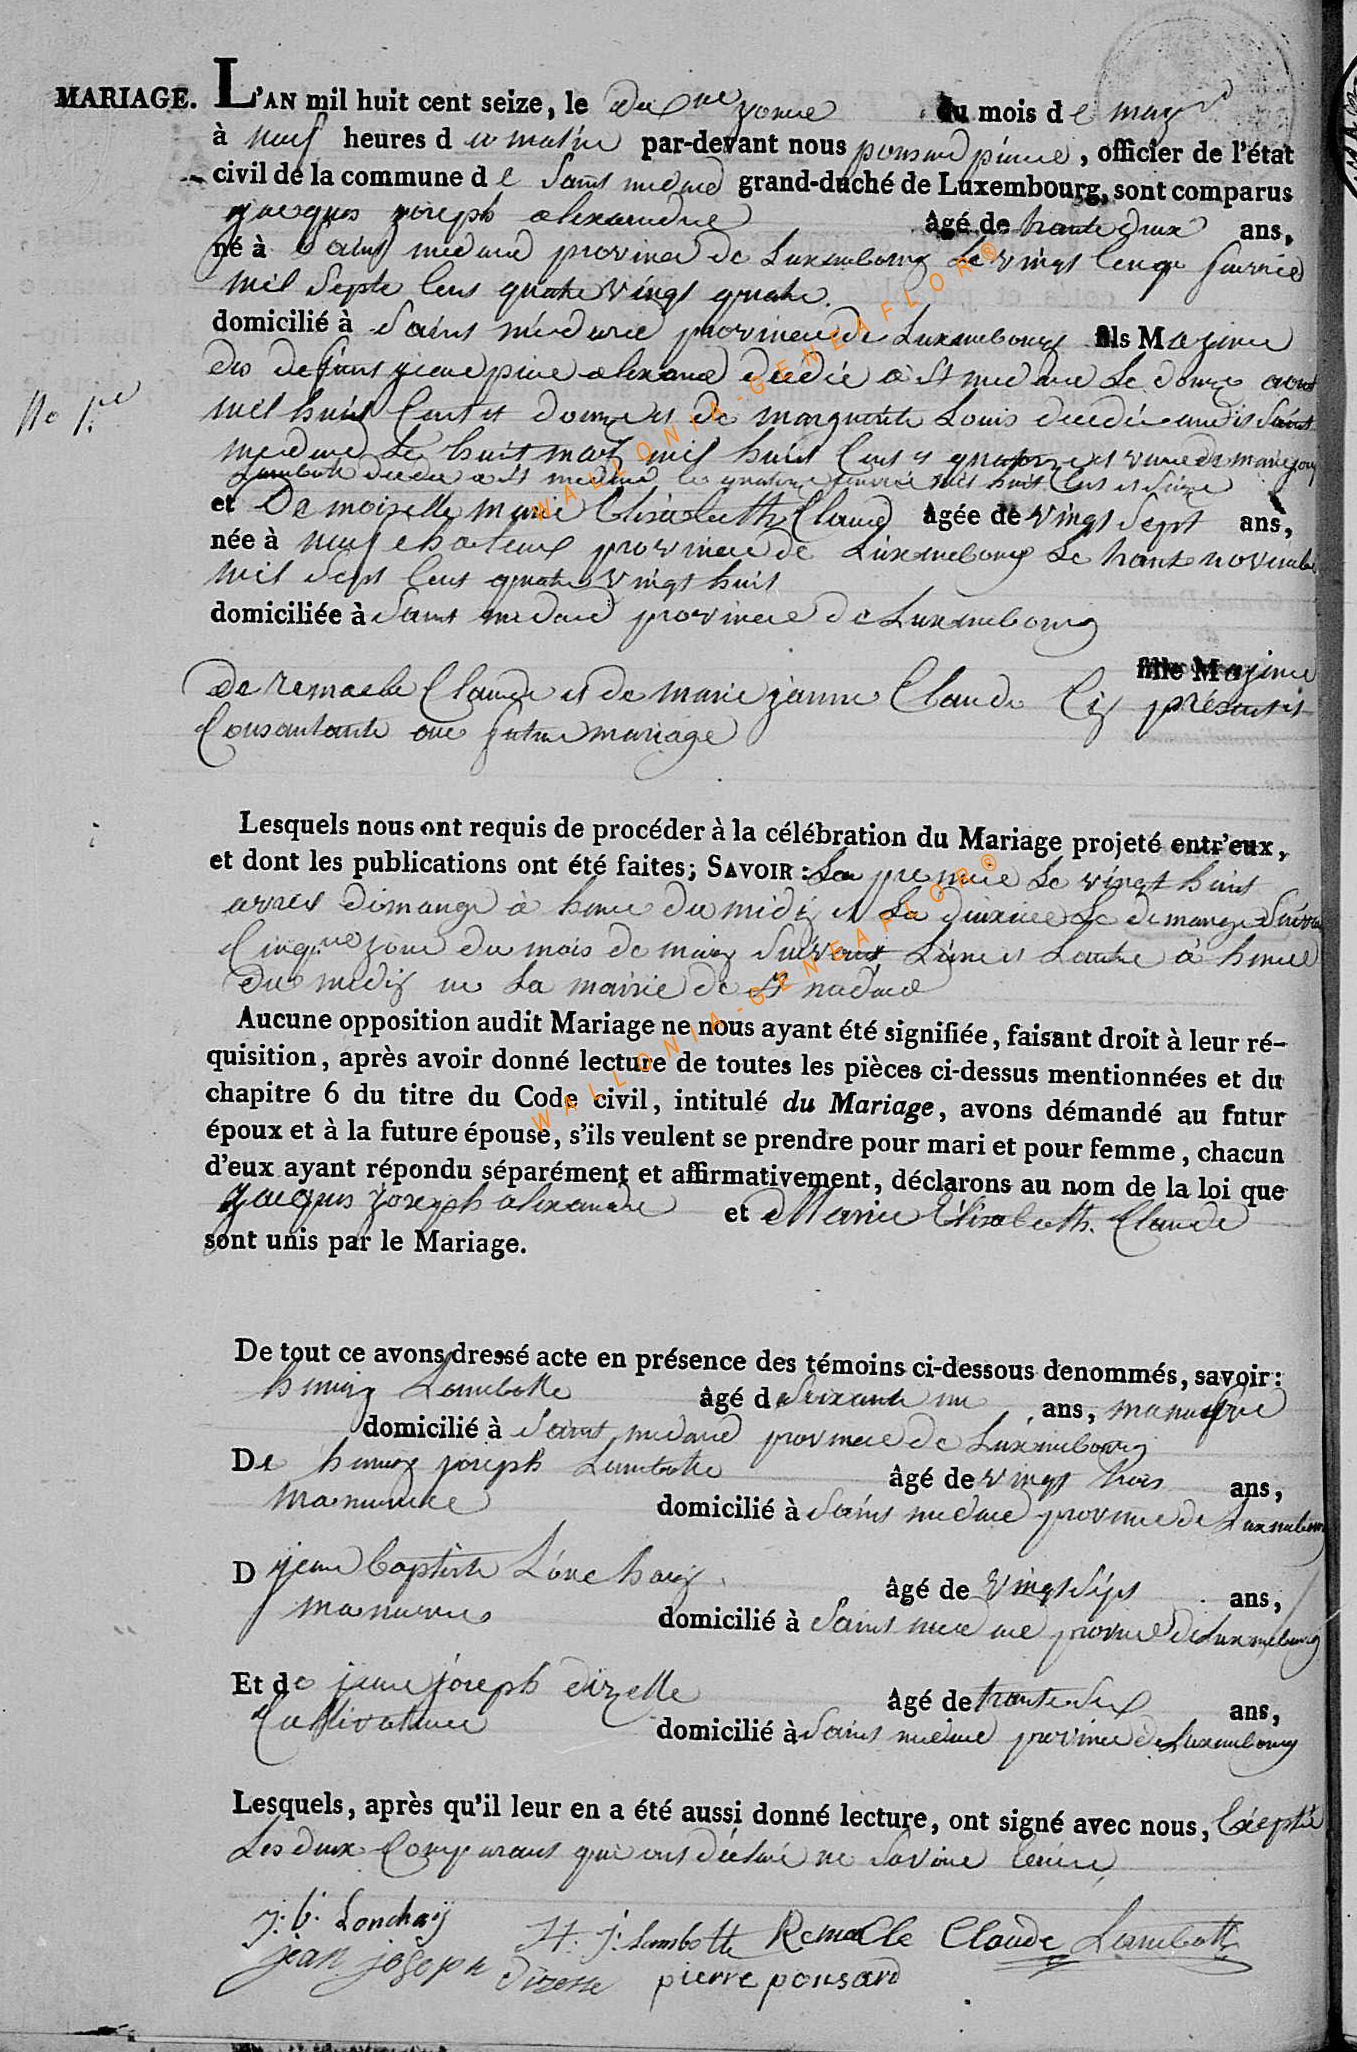 MARIAGE. L'AN mil huit cent seize, le du mois de may
à neuf heures du matin par-devant nous ponsard pierre, officier de l'état
civil de la commune de Saint medard grand-duché de Luxembourg, sont comparus
jacques joseph alexandre âgé de trante deux ans,
né à Saint medard province de Luxembourg Le vingt cenq
mil Septe Cens quatre vingt quatre.
domicilié à Saint médard province de Luxembourg fils Majeur
des defunt jean pierre alexandre décédé à St medard Le douze aout
No 1er
mil huit Cent et douze et de marguerite Louis decedée audit Saint
medard Le huit mil huit Cent et quatorze et
Lambotte décédée a St medard mil huit Cens et Seize
et Demoiselle marie Elisabetth Claude Agée de vingt Sept ans,
née à neuf chateaux province de Luxembourg Le trante novembre
mil Sept Cens quatre vingt huit
domiciliée à Saint medard province de Luxembourg
fille Majeure
de remacle Claude et de marie janne Claude Cy présent et
Consantante au futur mariage
Lesquels nous ont requis de procéder à la célébration du Mariage projeté entr'eux,
et dont les publications ont été faites; SAVOIR: La premiere Le vingt huit
dimange à heure du midy et La Le dimange
jour du mois de may Suivant L'une et Lautre à heure
du midy a La mairie de St medard
Aucune opposition audit Mariage ne nous ayant été signifiée, faisant droit à leur ré-
quisition, après avoir donné lecture de toutes les pièces ci-dessus mentionnées et du
chapitre 6 du titre du Code civil, intitulé du Mariage, avons démandé au futur
époux et à la future épouse, s'ils veulent se prendre pour mari et pour femme, chacun
d'eux ayant répondu séparément et affirmativement, déclarons au nom de la loi que
jacques joseph alexandre et Marie Elisabetth Claude
sont unis par le Mariage.
De tout ce avons dressé acte en présence des témoins ci-dessous denommés, savoir:
henry Lambotte âgé de Soixante un ans,
domicilié à Saint medard province de Luxembourg
De henry joseph Lambotte âgé de vingt trois ans,
manuvre domicilié à Saint medard province de Luxembourg
D jean baptiste Lonchay âgé de vingt Sept ans,
manuvre domicilié à Saint medard province de Luxembourg
Et de jean joseph dizelle âgé de trante Six ans,
Cultivateur domicilié à Saint medard province de Luxembourg
Lesquels, après qu'il leur en a été aussi donné lecture, ont signé avec nous, Exepté
Les deux Comparant qui ont déclaré ne Savoire Ecrire
J: b: Lonchaÿ H: J: Lambotte Remacle Claude Lambotte
jean joseph dizelle pierre ponsard
WALLONIA-GENEAFLOR®
WALLONIA-GENEAFLOR®